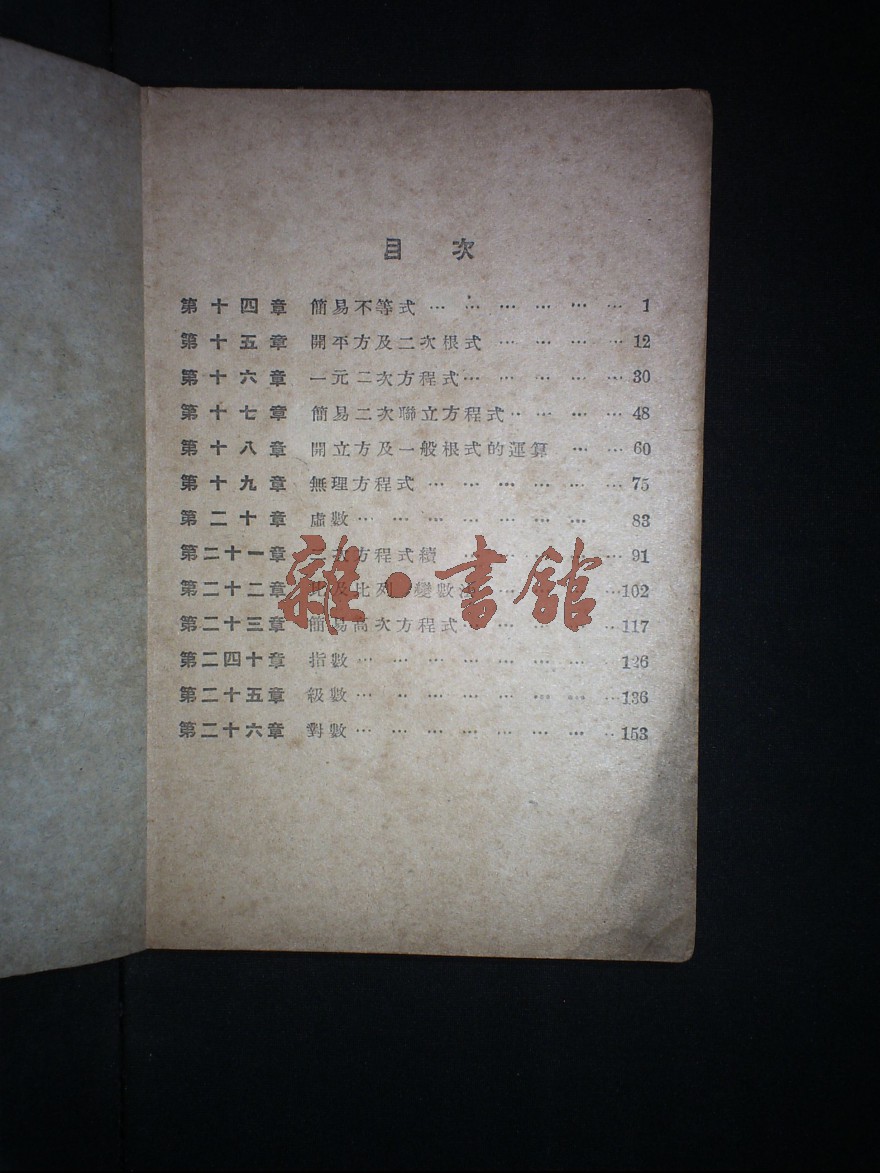 目 次
第十四章 簡易不等式 … … … … … … 1
第十五章 開平方及二次根式 … … … … … 12
第十六章 一元二次方程式 … … … … … 30
第十七章 簡易二次聯立方程式 … … … … 48
第十八章 開立方及一般根式的運算 … … 60
第十九章 無理方程式 … … … … … … 75
第二十章 虛數 … … … … … … … 83
第二十一章 二次方程式續 … … … … … 91
第二十二章 比及比列 變數法 … … … … 102
第二十三章 簡易高次方程式 … … … … … 117
第二四十章 指數 … … … … … … … … 126
第二十五章 級數 … … … … … … … … 136
第二十六章 對數 … … … … … … … … 153
雜·書館